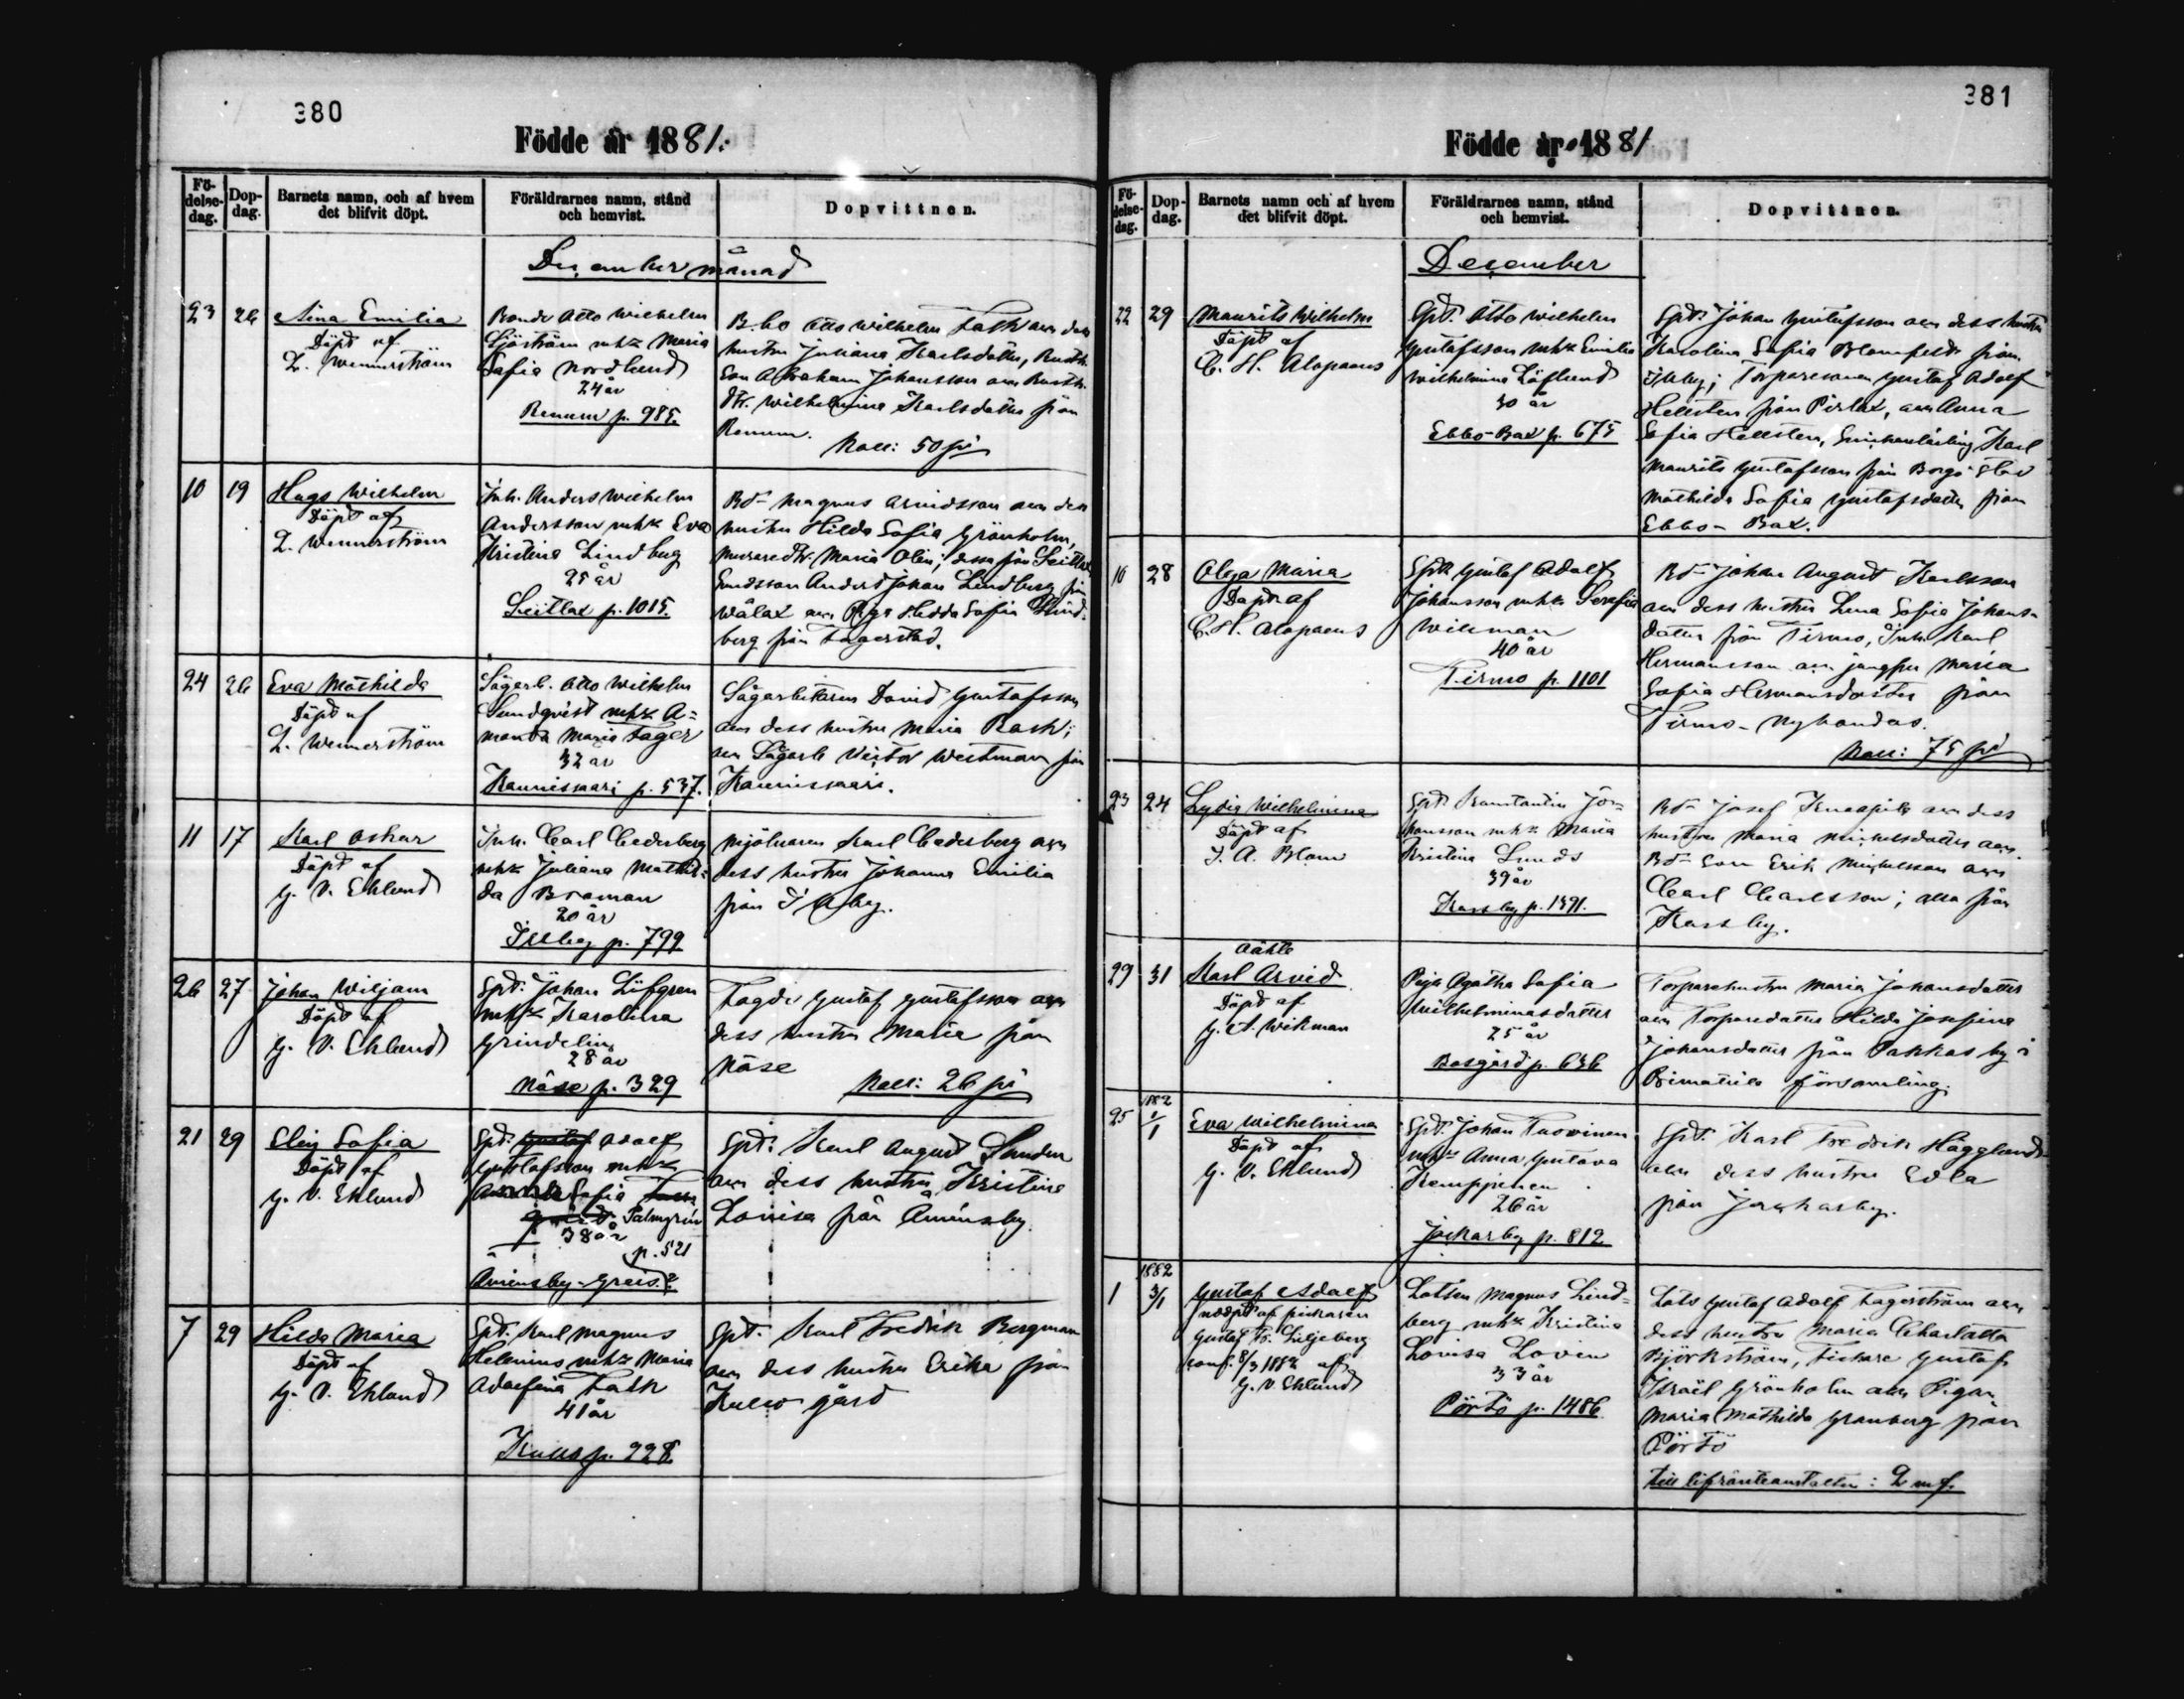 380
Födde år 1881.
Fö-
delse-
dag.
Dop-
dag.
Barnets namn, och af hvem
det blifvit döpt.
Föräldrarnes namn, stånd
och hemvist.
Dopvittnen.
December månad
23
26
Nina Emilia
Döpt af
L. Wennerström
Bonde Otto Wilhelm
Sjöström mhz Maria
Sofia Nordlund
24 år
Renum p. 985.
Otto Wilhelm Fath
hustru Juliana Karlsdotter,
Son Abraham Johansson
Wilhelmina Karlsdotter från
Renum.
Koll: 50 pi
10
19
Hugo Wilhelm
Döpt af
L. Wennerström
Inh. Anders Wilhelm
Andersson mhz Eva
Kristina Lindberg
25 år
Seitlax p. 1015.
Bd Magnus Arvidsson
hustru Hilda Sofia Grönholm,
Maria Olin; dessa från Seitlax
Anders Johan Lindberg från
Wålax Hedda Sofia Lind-
berg från Fagerstad.
24
26
Eva Mathilda
Döpt af
L. Wennerström
Sågarb. Otto Wilhelm
Sundqvist mhz A-
manda Maria Fager
32 år
Kaunissaari p. 537.
Sågarbetaren David Gustafsson
dess hustru Maria Rask;
Sågarb Victor Westman från
Kaunissaari.
11
17
Karl Oskar
Döpt af
G. V. Eklund
Inh. Carl Cederberg
mhz Juliana Mathil-
da Broman
20 år
Illby p. 799
Mjölnaren Karl Cederberg
dess hustru Johanna Emilia
från Illby.
26
27
Johan Wiljam
Döpt af
G. V. Eklund
Spt. Johan Löfgren
mhz Karolina
Grindelin
28 år
Näse p. 329
Gustaf Gustafsson
dess hustru Maria från
Näse
Koll: 26 pi
21
29
Elin Sofia
Döpt af
G. V. Eklund
Spt. Gustaf Adolf
Gustafsson mhz
Sofia
Palmgrén
38 år
p. 521
Spt. Karl August
dess hustru Kristina
Lovisa från
7
29
Hilda Maria
Döpt af
G. V. Eklund
Spt. Karl Magnus
Helenius mhz Maria
Adolfina Falk
41 år
Kullo p. 228
Spt. Karl Fredrik Bergman
dess hustru Erika från
Kullo gård
381
Födde år 1881
Fö-
delse-
dag.
Dop-
dag.
Barnets namn och af hvem
det blifvit döpt.
Föräldrarnes namn, stånd
och hemvist.
Dopvittnen.
December
22
29
Maurits Wilhelm
Döpt af
C. H. Alopaeus
Spt. Otto Wilhelm
Gustafsson mhz Emilia
Wilhelmina Löflund
30 år
Ebbo-Bax p. 675
Spt. Johan Gustafsson dess hustru
Karolina Sofia Blomfelt från
Illby; Torparesonen Gustaf Adolf
Hellsten från Pirlax, Anna
Sofia Hellsten, Karl
Maurits Gustafsson från Borgå stad
Mathilda Sofia Gustafsdotter från
Ebbo-Bax.
10
28
Olga Maria
Döpt af
C. H. Alopaeus
Spt. Gustaf Adolf
Johansson mhz Serafia
Wikman
40 år
Tirmo p. 1101
Bd Johan August Karlsson
dess hustru Lena Sofia Johans-
dotter från Tirmo, Inh. Karl
Hermansson jungfru Maria
Sofia Hermansdotter från
Tirmo-Nybondas.
Koll: 75 pi
23
24
Lydia Wilhelmina
Döpt af
J. A. Blom
Spt. Konstantin Jo-
hansson mhz Maria
Kristina Lunds
39 år
Karsby p. 1391.
Bd Josef dess
hustru Maria Mickelsdotter
Bd Son Erik Mickelsson
Carl Carlsson; alla från
Karsby.
29
31
Oäkta
Karl Arvid
Döpt af
G. A. Wikman
Piga Agatha Sofia
Wilhelminasdotter
25 år
Bosgård p. 636
Torparehustru Maria Johansdotter
Torparedotter Hilda Josefina
Johansdotter från Pakkasby i
församling.
25
1882
1/1
Eva Wilhelmina
Döpt af
G. V. Eklund
Spt. Johan Tuovinen
mhz Anna Gustava
Kemppinen
26 år
Jackarby p. 812
Spt. Karl Fredrik Hägglund
dess hustru Edla
från Jackarby.
1
1882
3/1
Gustaf Adolf
nödpt af fiskaren
Gustaf Fr. Liljeberg
conf. 8/3 1882 af
G. V. Eklund
Lotsen Magnus Lind-
berg mhz Kristina
Lovisa Lovin
33 år
Pörtö p. 1486.
Lots Gustaf Adolf Fagerström
dess hustru Maria Charlotta
Björkström, Fiskare Gustaf
Israël Grönholm Pigan
Maria Mathilda Granberg från
Pörtö
till lifränteanstalten: 2 mf.